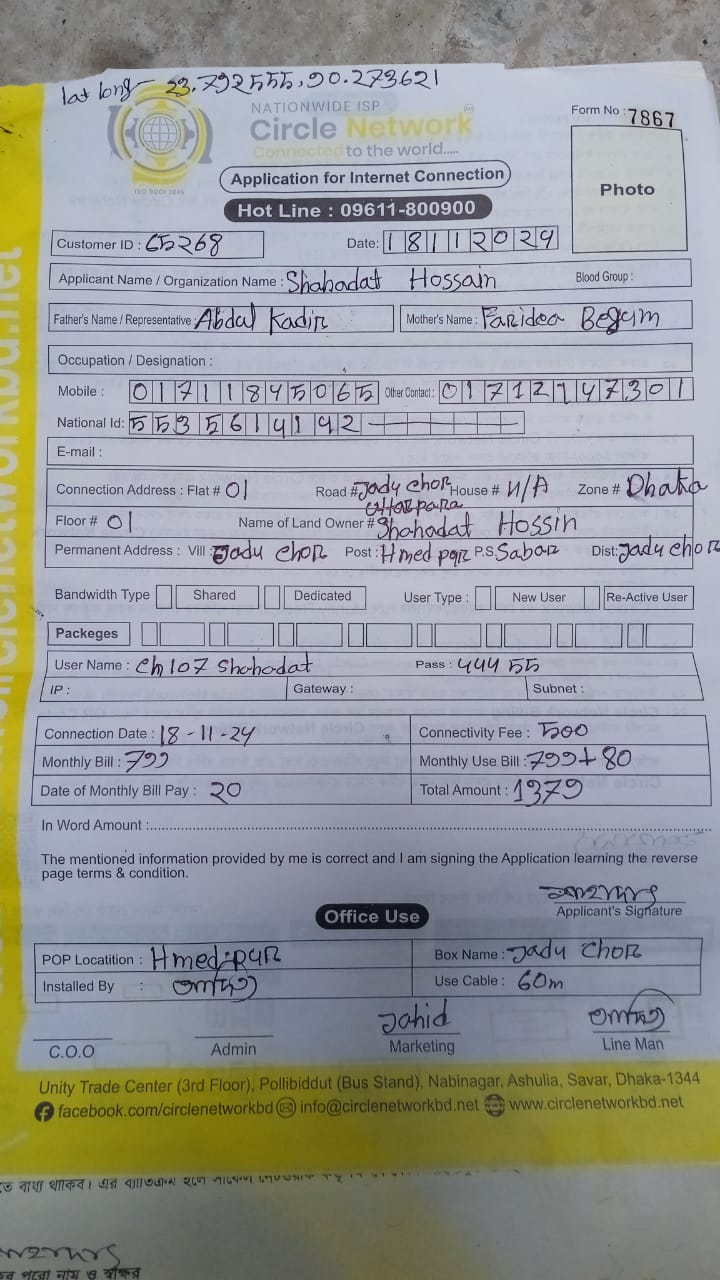 lat long - 23.792555, 90.273621
NATIONWIDE ISP
Circle Network
Connected to the world.....
ISO 9001:2015
Form No : 7867
Photo
Application for Internet Connection
Hot Line : 09611-800900
Customer ID : 65268 Date: 18112024
Applicant Name / Organization Name : Shahadat Hossain Blood Group :
Father's Name / Representative : Abdal Kadir Mother's Name : Faridea Begum
Occupation / Designation :
Mobile : 01711845065 Other Contact : 01712747301
National Id: 5535614142
E-mail :
Connection Address : Flat # 01 Road # Jadu Chor House # N/A Zone # Dhaka
uttarpara
Floor # 01 Name of Land Owner # Shahadat Hossin
Permanent Address : Vill : Jadu Chor Post : Hmed pur P.S. Sabar Dist: Jadu chor
Bandwidth Type Shared Dedicated User Type : New User Re-Active User
Packeges
User Name : Ch107 Shahadat Pass : 444 55
IP : Gateway : Subnet :
Connection Date : 18-11-24 Connectivity Fee : 500
Monthly Bill : 799 Monthly Use Bill : 799+80
Date of Monthly Bill Pay : 20 Total Amount : 1379
In Word Amount :
The mentioned information provided by me is correct and I am signing the Application learning the reverse
page terms & condition.
Applicant's Signature
Office Use
POP Locatition : Hmedpur Box Name : Jadu Chor
Installed By : Use Cable : 60m
Jahid
C.O.O Admin Marketing Line Man
Unity Trade Center (3rd Floor), Pollibiddut (Bus Stand), Nabinagar, Ashulia, Savar, Dhaka-1344
facebook.com/circlenetworkbd info@circlenetworkbd.net www.circlenetworkbd.net